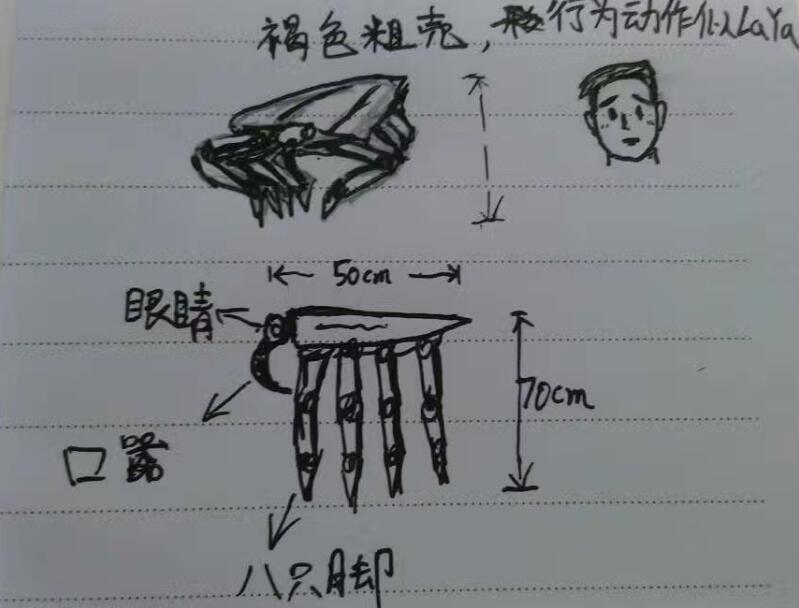 褐色粗壳，行为动作似LaYa
50cm
眼睛
70cm
口器
八只脚